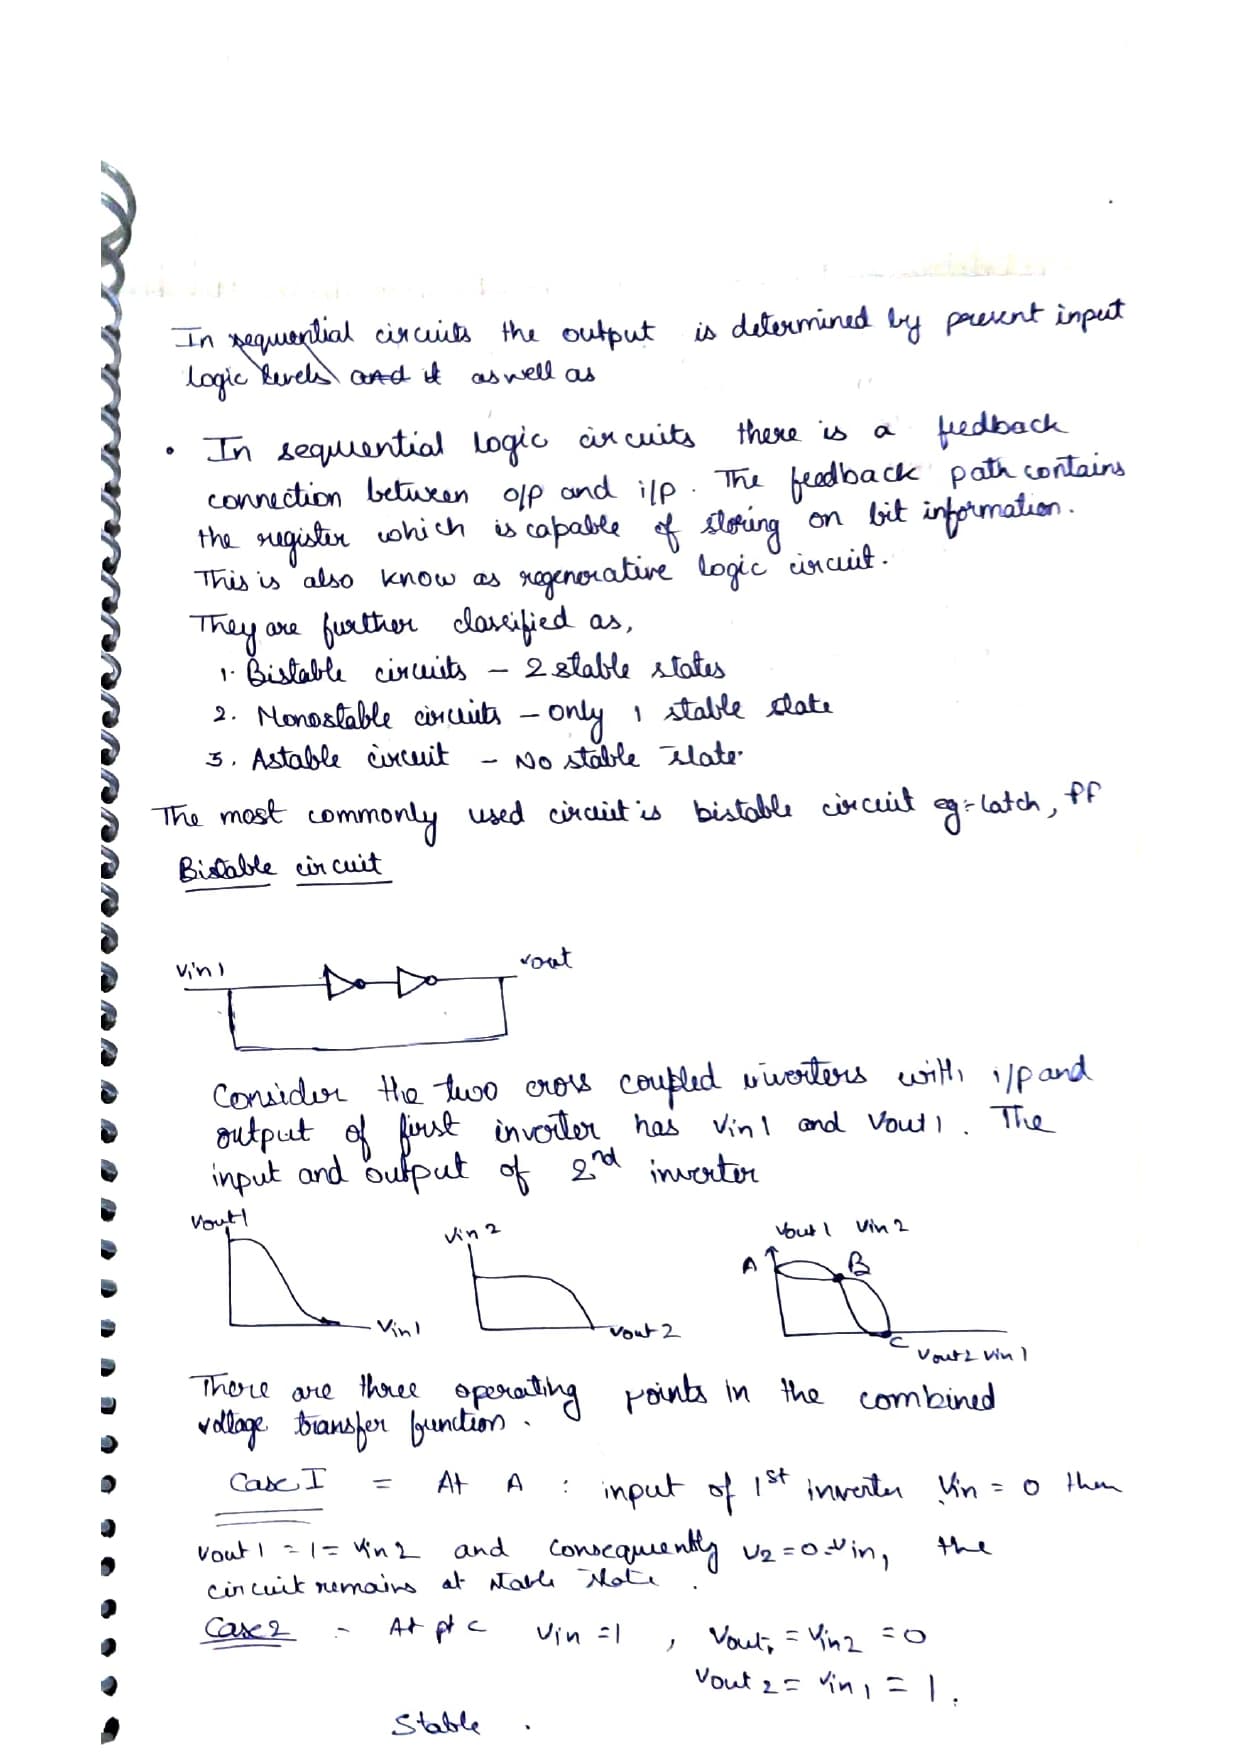 In sequential circuits the output is determined by present input
logic levels and it as well as
• In sequential logic circuits there is a feedback
connection between o/p and i/p. The feedback path contains
the register which is capable of storing on bit information.
This is also know as regenerative logic circuit.
They are further classified as,
1. Bistable circuits - 2 stable states
2. Monostable circuits - only 1 stable state
3. Astable circuit - No stable state.
The most commonly used circuit is bistable circuit eg:- latch, ff
Bistable circuit
Vin1 vout
Consider the two cross coupled inverters with i/p and
output of first inverter has Vin1 and Vout1. The
input and output of 2nd inverter
Vout1 Vin2 Vout1 Vin2
A B
Vin1 Vout2 C
Vout2 Vin1
There are three operating points in the combined
voltage transfer function.
Case I = At A : input of 1st inverter Vin = 0 then
Vout1 = 1 = Vin2 and consequently V2 = 0 = Vin, the
circuit remains at stable state.
Case 2 :- At pt C Vin = 1, Vout1 = Vin2 = 0
Vout2 = Vin1 = 1.
Stable.